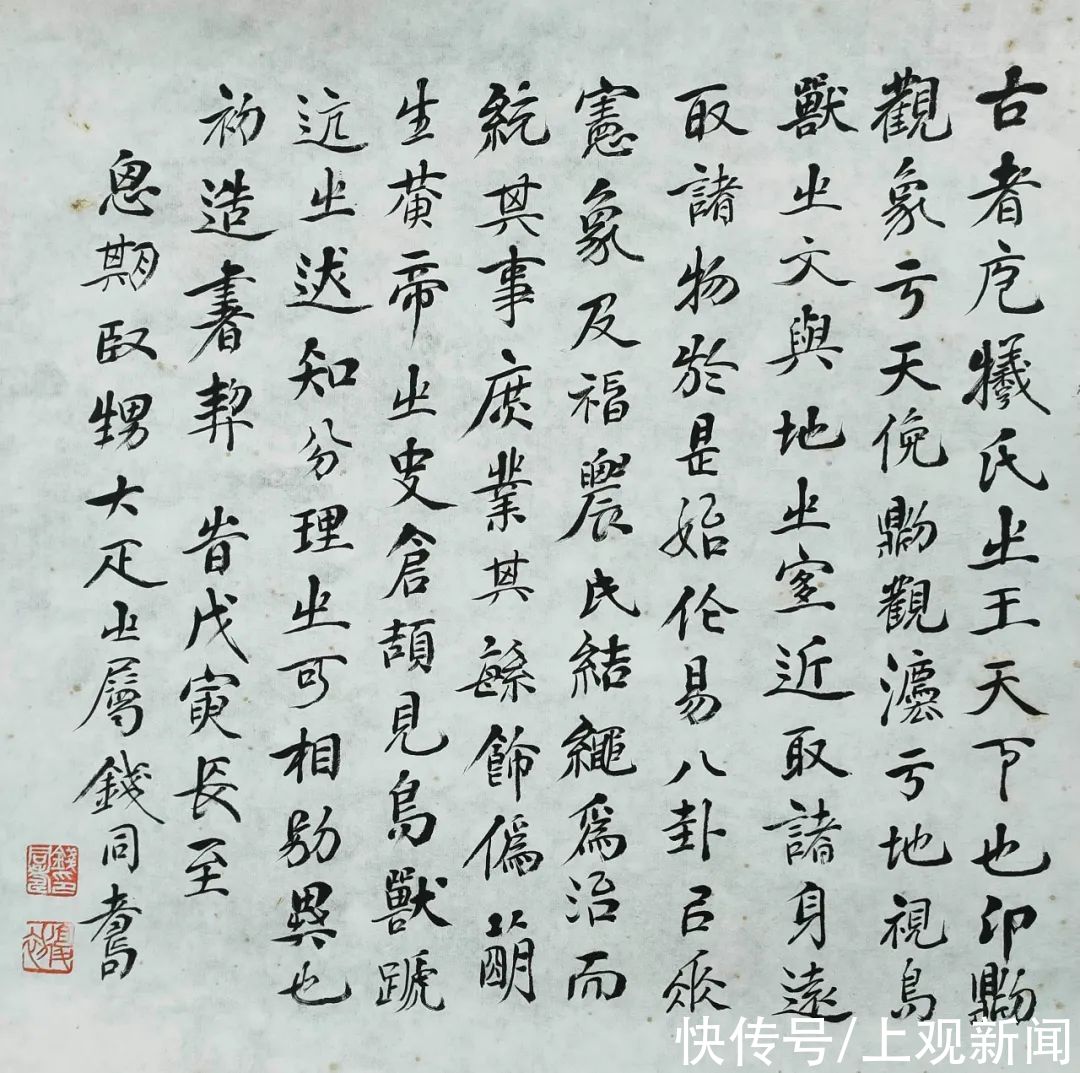 古者庖犧氏㞢王天下也卬𠟭
觀象亏天俛𠟭觀灋亏地視鳥
獸㞢文與地㞢宐近取諸身遠
取諸物於是始作易八卦㠯𠂹
憲象及神農氏結繩爲治而
統其事庶業其緐飾僞萌
生黃帝㞢史倉頡見鳥獸蹏
迒㞢迹知分理㞢可相別異也
初造書契 旹戊寅長至
恩期臤甥大疋㞢屬錢同壽
快传号/上观新闻